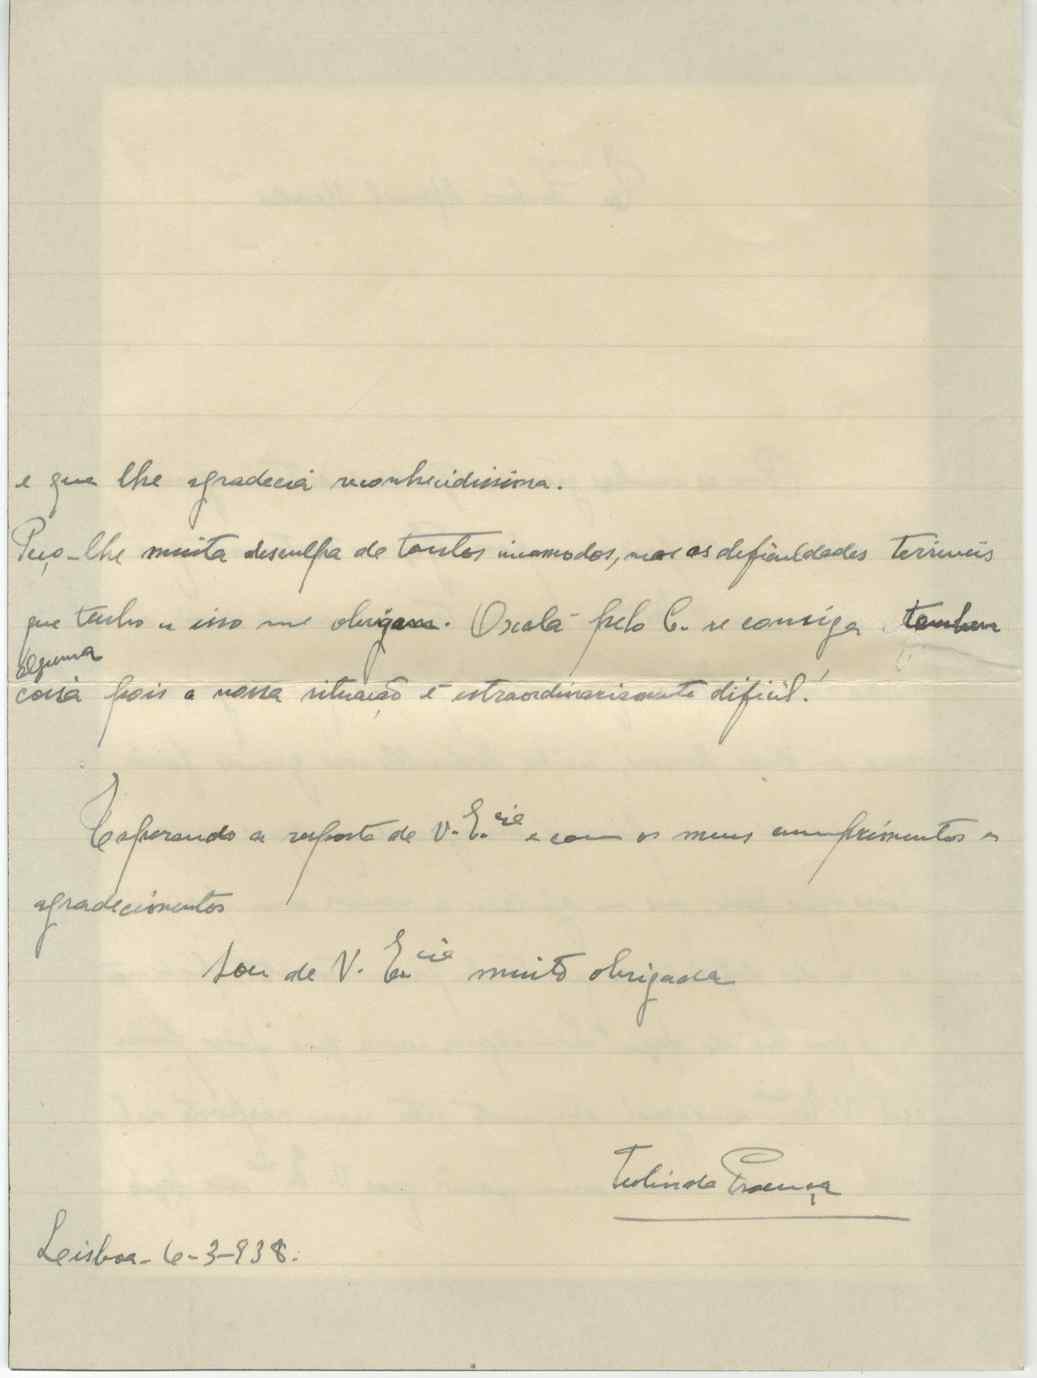 e que lhe agradecia reconhecidissima.
Peço-lhe muita desculpa de tantos incomodos, mas as deficuldades terriveis
que tenho a isso me obrigam. Oxalá pelo C. se consiga tambem
alguma
coisa pois a nossa situação é extraordinariamente dificil!
Esperando a resposta de V. E.cia e com os meus cumprimentos e
agradecimentos
Sou de V. Ex.cia muito obrigada
Teolinda Proença
Leisboa - 6-3-938.